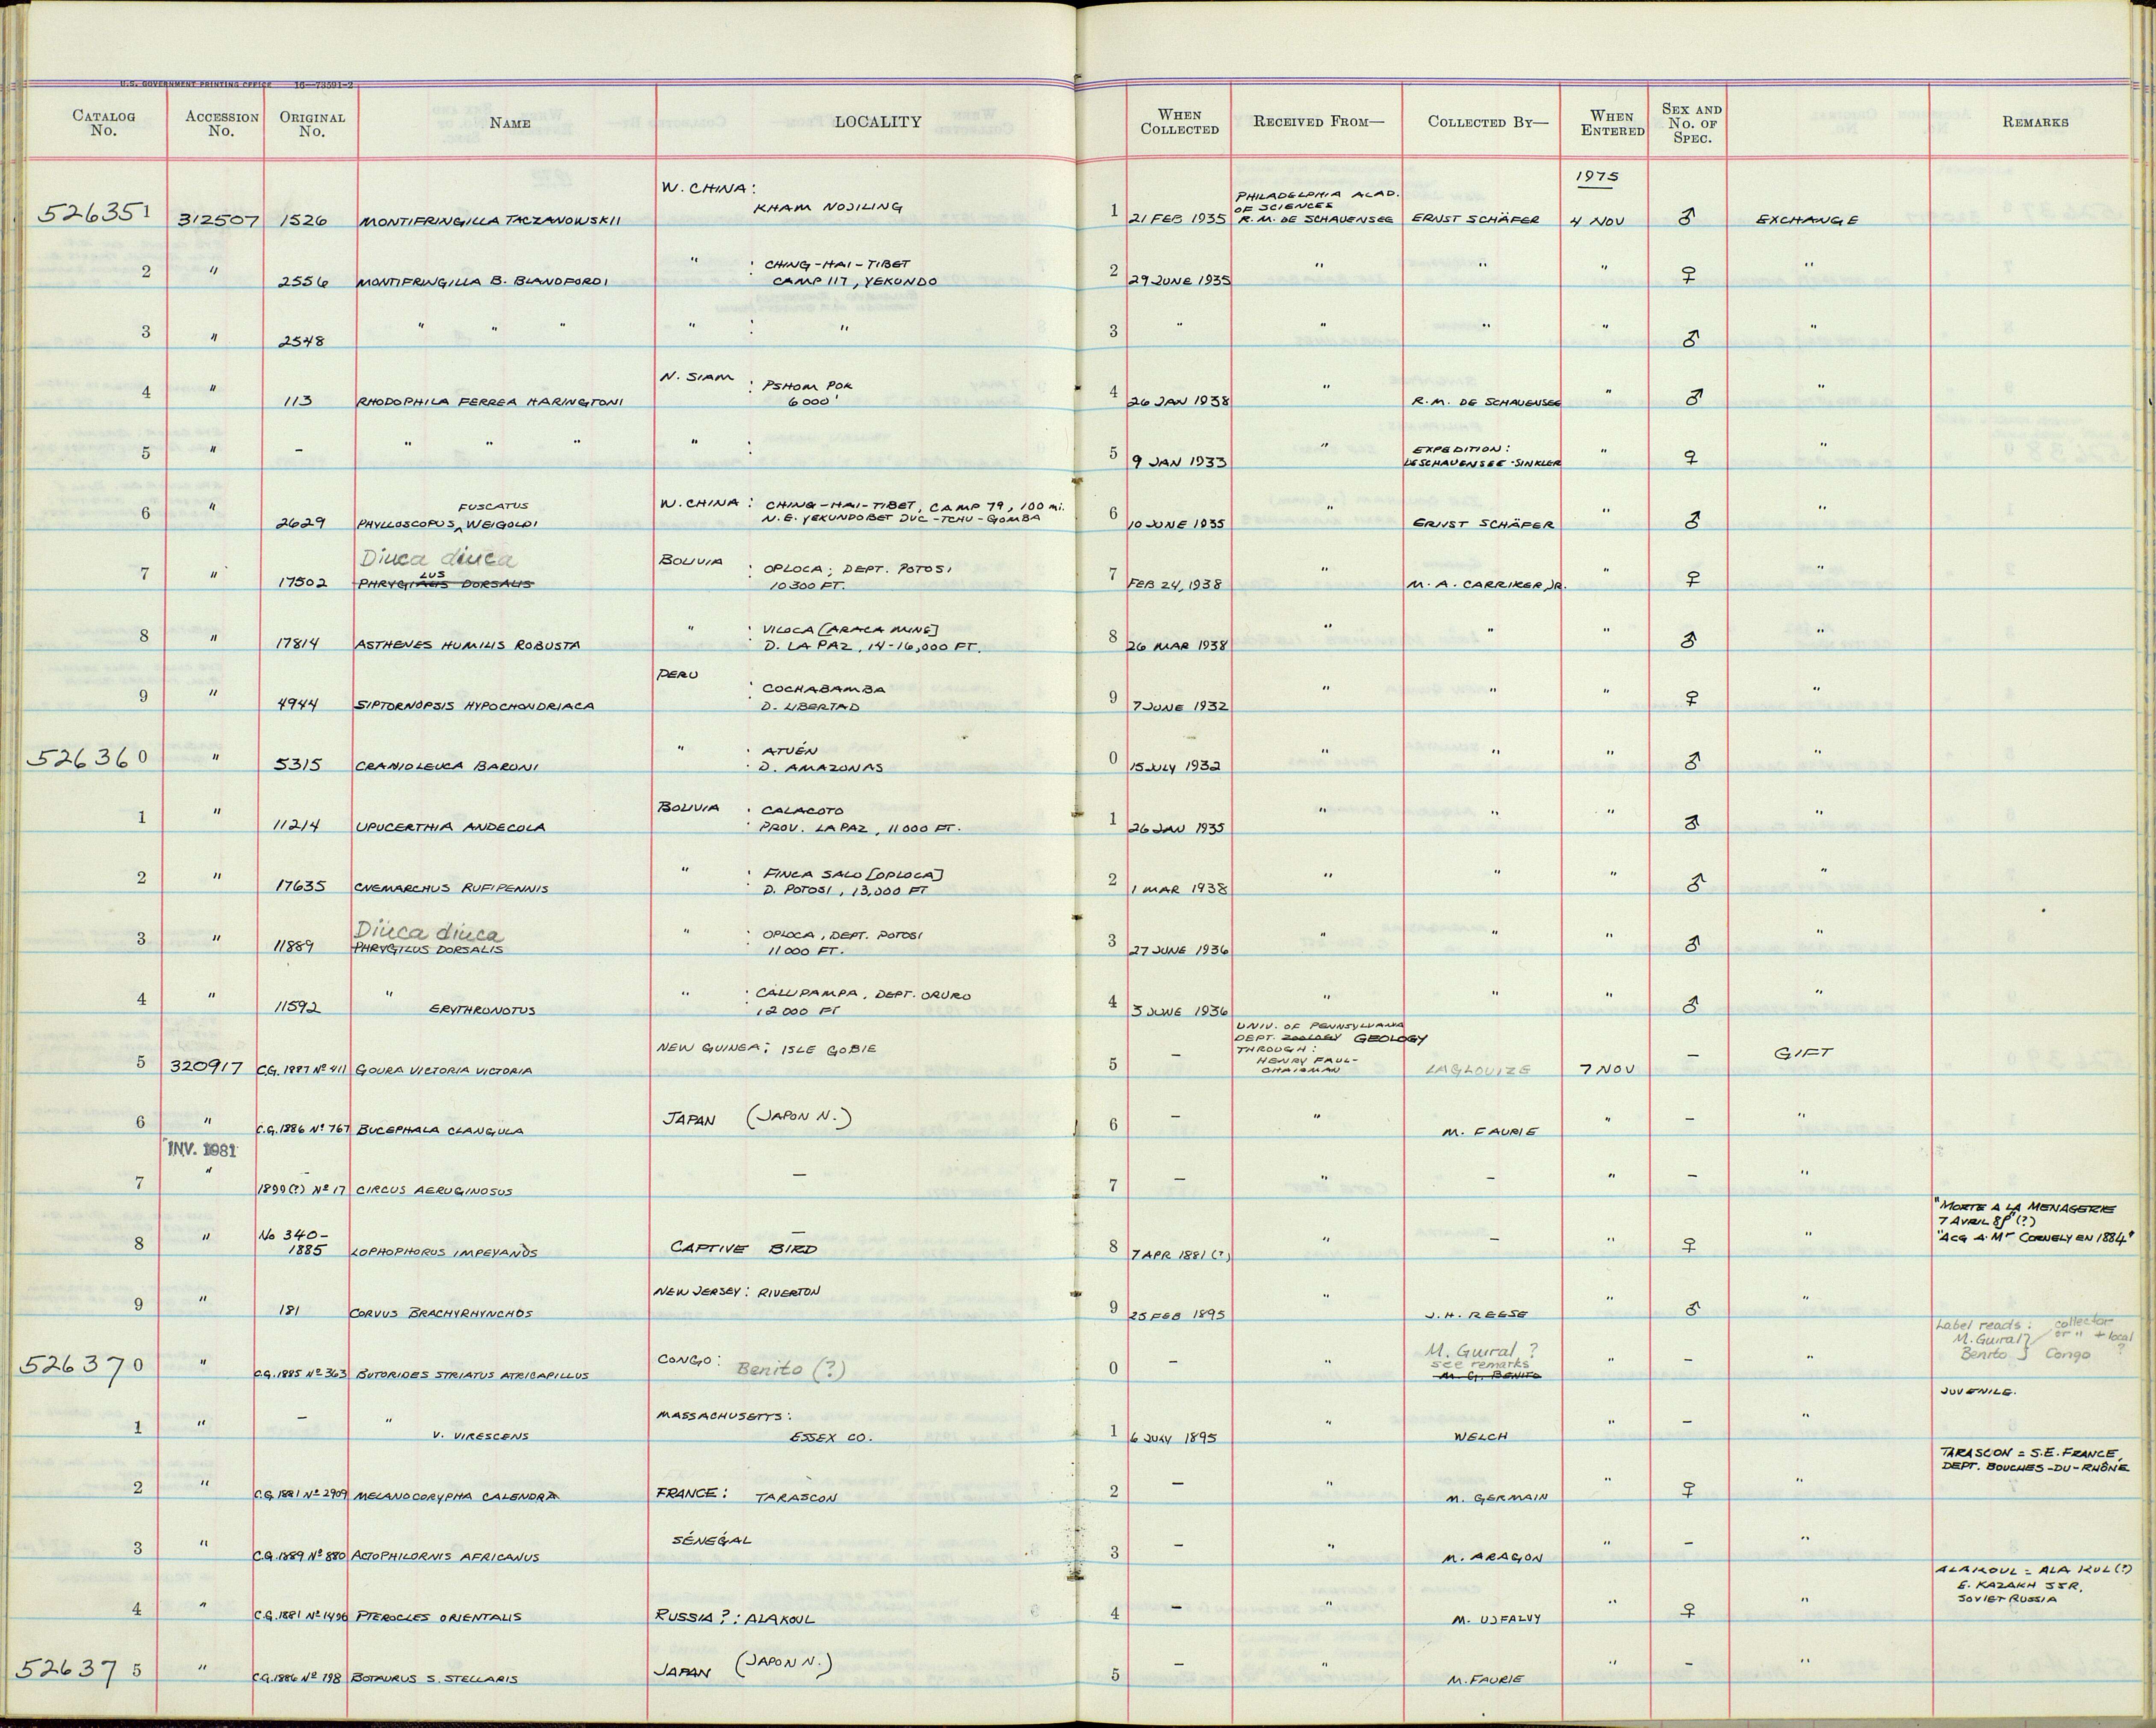 U.S. GOVERNMENT PRINTING OFFICE 16—73591-2
CATALOG No. ACCESSION No. ORIGINAL No. NAME LOCALITY WHEN COLLECTED RECEIVED FROM— COLLECTED BY— WHEN ENTERED SEX AND No. OF SPEC. REMARKS
1975
W. CHINA: PHILADELPHIA ACAD. OF SCIENCES
526351 312507 1526 MONTIFRINGILLA TACZANOWSKII KHAM NOJILING 1 21 FEB 1935 R. M. DE SCHAUENSEE ERNST SCHÄFER 4 NOV ♂ EXCHANGE
" : CHING-HAI-TIBET
2 " 2556 MONTIFRINGILLA B. BLANDFORDI CAMP 117, YEKUNDO 2 29 JUNE 1935 " " " ♀ "
3 " 2548 " " " " : " 3 " " " " ♂ "
N. SIAM : PSHOM POK
4 " 113 RHODOPHILA FERREA HARINGTONI 6000' 4 26 JAN 1938 " R. M. DE SCHAUENSEE " ♂ "
5 " – " " " " : 5 9 JAN 1933 " EXPEDITION: DESCHAUENSEE-SINKLER " ♀ "
FUSCATUS W. CHINA : CHING-HAI-TIBET, CAMP 79, 100 mi.
6 " 2629 PHYLLOSCOPUS ^ WEIGOLDI N.E. YEKUNDO BET DUC-TCHU-GOMBA 6 10 JUNE 1935 " ERNST SCHÄFER " ♂ "
Diuca diuca BOLIVIA : OPLOCA; DEPT. POTOSI
7 " 17502 PHRYGIALIS LUS DORSALIS 10300 FT. 7 FEB 24, 1938 " M. A. CARRIKER, JR. " ♀ "
" : VILOCA [ARACA MINE]
8 " 17814 ASTHENES HUMILIS ROBUSTA D. LA PAZ, 14-16,000 FT. 8 26 MAR 1938 " " " ♂ "
PERU : COCHABAMBA
9 " 4944 SIPTORNOPSIS HYPOCHONDRIACA D. LIBERTAD 9 7 JUNE 1932 " " " ♀ "
" : ATUÉN
526360 " 5315 CRANIOLEUCA BARONI D. AMAZONAS 0 15 JULY 1932 " " " ♂ "
BOLIVIA : CALACOTO
1 " 11214 UPUCERTHIA ANDECOLA PROV. LA PAZ, 11000 FT. 1 26 JAN 1935 " " " ♂ "
" : FINCA SALO [OPLOCA]
2 " 17635 CNEMARCHUS RUFIPENNIS D. POTOSI, 13,000 FT 2 1 MAR 1938 " " " ♂ "
Diuca diuca " : OPLOCA, DEPT. POTOSI
3 " 11889 PHRYGILUS DORSALIS 11000 FT. 3 27 JUNE 1936 " " " ♂ "
" : CALLIPAMPA, DEPT. ORURO
4 " 11592 " ERYTHRONOTUS 12000 FT 4 3 JUNE 1936 " " " ♂ "
NEW GUINEA; ISLE GOBIE UNIV. OF PENNSYLVANIA DEPT. ZOOLOGY GEOLOGY THROUGH: HENRY FAUL- CHAIRMAN
5 320917 C.G. 1887 Nº 411 GOURA VICTORIA VICTORIA 5 – LAGLOUIZE 7 NOV – GIFT
6 " C.G. 1886 Nº 767 BUCEPHALA CLANGULA JAPAN (JAPON N.) 6 – " M. FAURIE " – "
INV. 1981
7 " 1899(?) Nº 17 CIRCUS AERUGINOSUS – 7 – " – " – "
"MORTE A LA MENAGERIE
7 AVRIL 81" (?)
8 " No 340-1885 LOPHOPHORUS IMPEYANUS – CAPTIVE BIRD 8 7 APR 1881 (?) " – " ♀ " "ACG A. Mr CORNELY EN 1884"
9 " 181 CORVUS BRACHYRHYNCHOS NEW JERSEY: RIVERTON 9 25 FEB 1895 " J. H. REESE " ♂ "
Label reads: collector
M. Guiral? or " + local
Benito } Congo ?
526370 " C.G. 1885 Nº 363 BUTORIDES STRIATUS ATRICAPILLUS CONGO: Benito (?) 0 – " M. Guiral ? see remarks M. G. BENITO " – "
JUVENILE.
1 " – " V. VIRESCENS MASSACHUSETTS: ESSEX CO. 1 6 JULY 1895 " WELCH " – "
TARASCON = S.E. FRANCE,
DEPT. BOUCHES-DU-RHÔNE
2 " C.G. 1881 Nº 2909 MELANOCORYPHA CALENDRA FRANCE: TARASCON 2 – " M. GERMAIN " ♀ "
3 " C.G. 1889 Nº 880 ACTOPHILORNIS AFRICANUS SÉNÉGAL 3 – " M. ARAGON " – "
ALAKOUL = ALA KUL (?)
E. KAZAKH SSR,
SOVIET RUSSIA
4 " C.G. 1881 Nº 1496 PTEROCLES ORIENTALIS RUSSIA?: ALAKOUL 4 – " M. UJFALVY " ♀ "
526375 " C.G. 1886 Nº 798 BOTAURUS S. STELLARIS JAPAN (JAPON N.) 5 – " M. FAURIE " – "